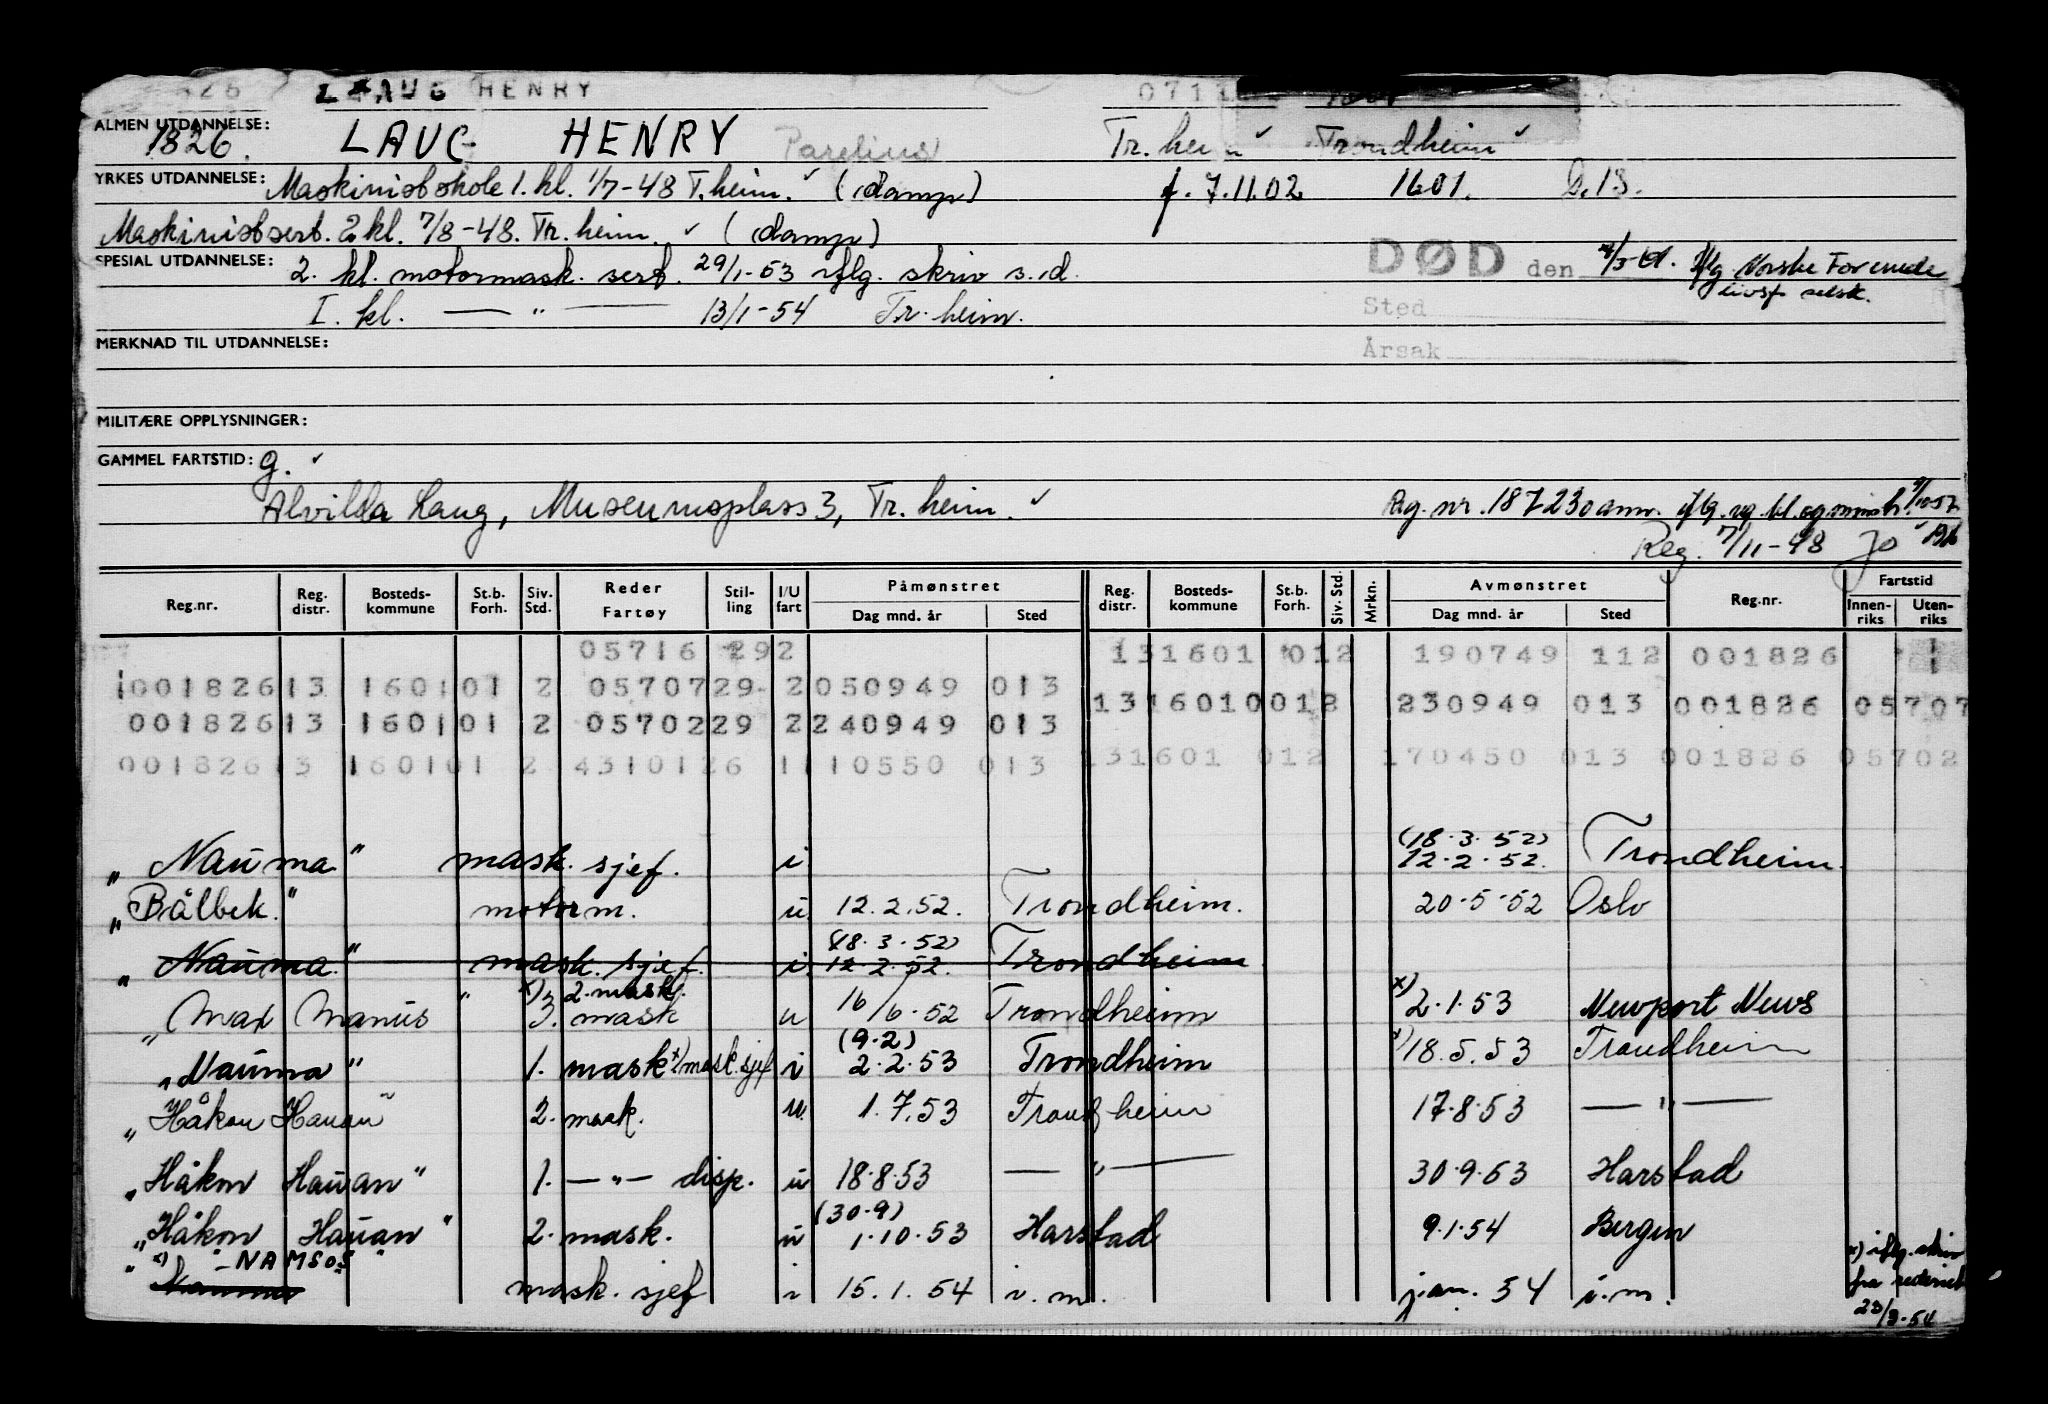 LAUG HENRY 0711
ALMEN UTDANNELSE:
1826. LAUG HENRY Parelius Tr.heim Trondheim
YRKES UTDANNELSE: Maskinistskole 1. kl. 1/7-48 T.heim. (damp) f. 7.11.02 1601. D.13.
Maskinistsert. 2 kl. 7/8-48. Tr.heim. (damp)
SPESIAL UTDANNELSE: 2. kl. motormask. sert. 29/1-53 iflg. skriv s.d. DØD den iflg. Norske Forenede
livsf. selsk.
I. kl. — " — 13/1-54 Tr.heim. Sted
MERKNAD TIL UTDANNELSE: Årsak
MILITÆRE OPPLYSNINGER:
GAMMEL FARTSTID: g.
Alvilda Laug, Museumsplass 3, Tr.heim. Rg. nr. 187230 ann. iflg.
Reg. 7/11-48
Reg.nr. Reg. distr. Bosteds-kommune St.b. Forh. Siv. Std. Reder Fartøy Stil-ling I/U fart Påmønstret Dag mnd. år Sted Reg. distr. Bosteds-kommune St.b. Forh. Siv. Std. Mrkn. Avmønstret Dag mnd. år Sted Reg.nr. Fartstid Innen-riks Uten-riks
05716 292 131601 012 190749 112 001826
001826 13 1601 01 2 05707 29 2 050949 013 131601 0012 230949 013 001826 05707
001826 13 1601 01 2 05702 29 2 240949 013
001826 13 1601 01 2 43101 26 1 110550 013 131601 012 170450 013 001826 05702
(18.3.52)
" Nauma " mask. sjef. i 12.2.52. Trondheim.
" Bålbek. " motorm. u 12.2.52. Trondheim. 20.5.52 Oslo
(18.3.52)
" Nauma " mask. sjef. i. 12.2.52. Trondheim
x) 2. mask.
" Max Manus " 3. mask u 16/6.52 Trondheim x) 2.1.53 Newport News
(9.2)
" Nauma " 1. mask x) mask. sjef i 2.2.53 Trondheim x) 18.5.53 Trondheim
" Håkon Hauan " 2. mask. u. 1.7.53 Trondheim 17.8.53 — " —
" Håkon Hauan " 1. — " — disp. u 18.8.53 — " — 30.9.53 Harstad
(30.9)
" Håkon Hauan " 2. mask. u 1.10.53 Harstad 9.1.54 Bergen
" x) - NAMSOS " x) iflg. skriv
Nauma mask. sjef i 15.1.54 i.m. jan. 54 i.m. fra rederiet
23/3-54